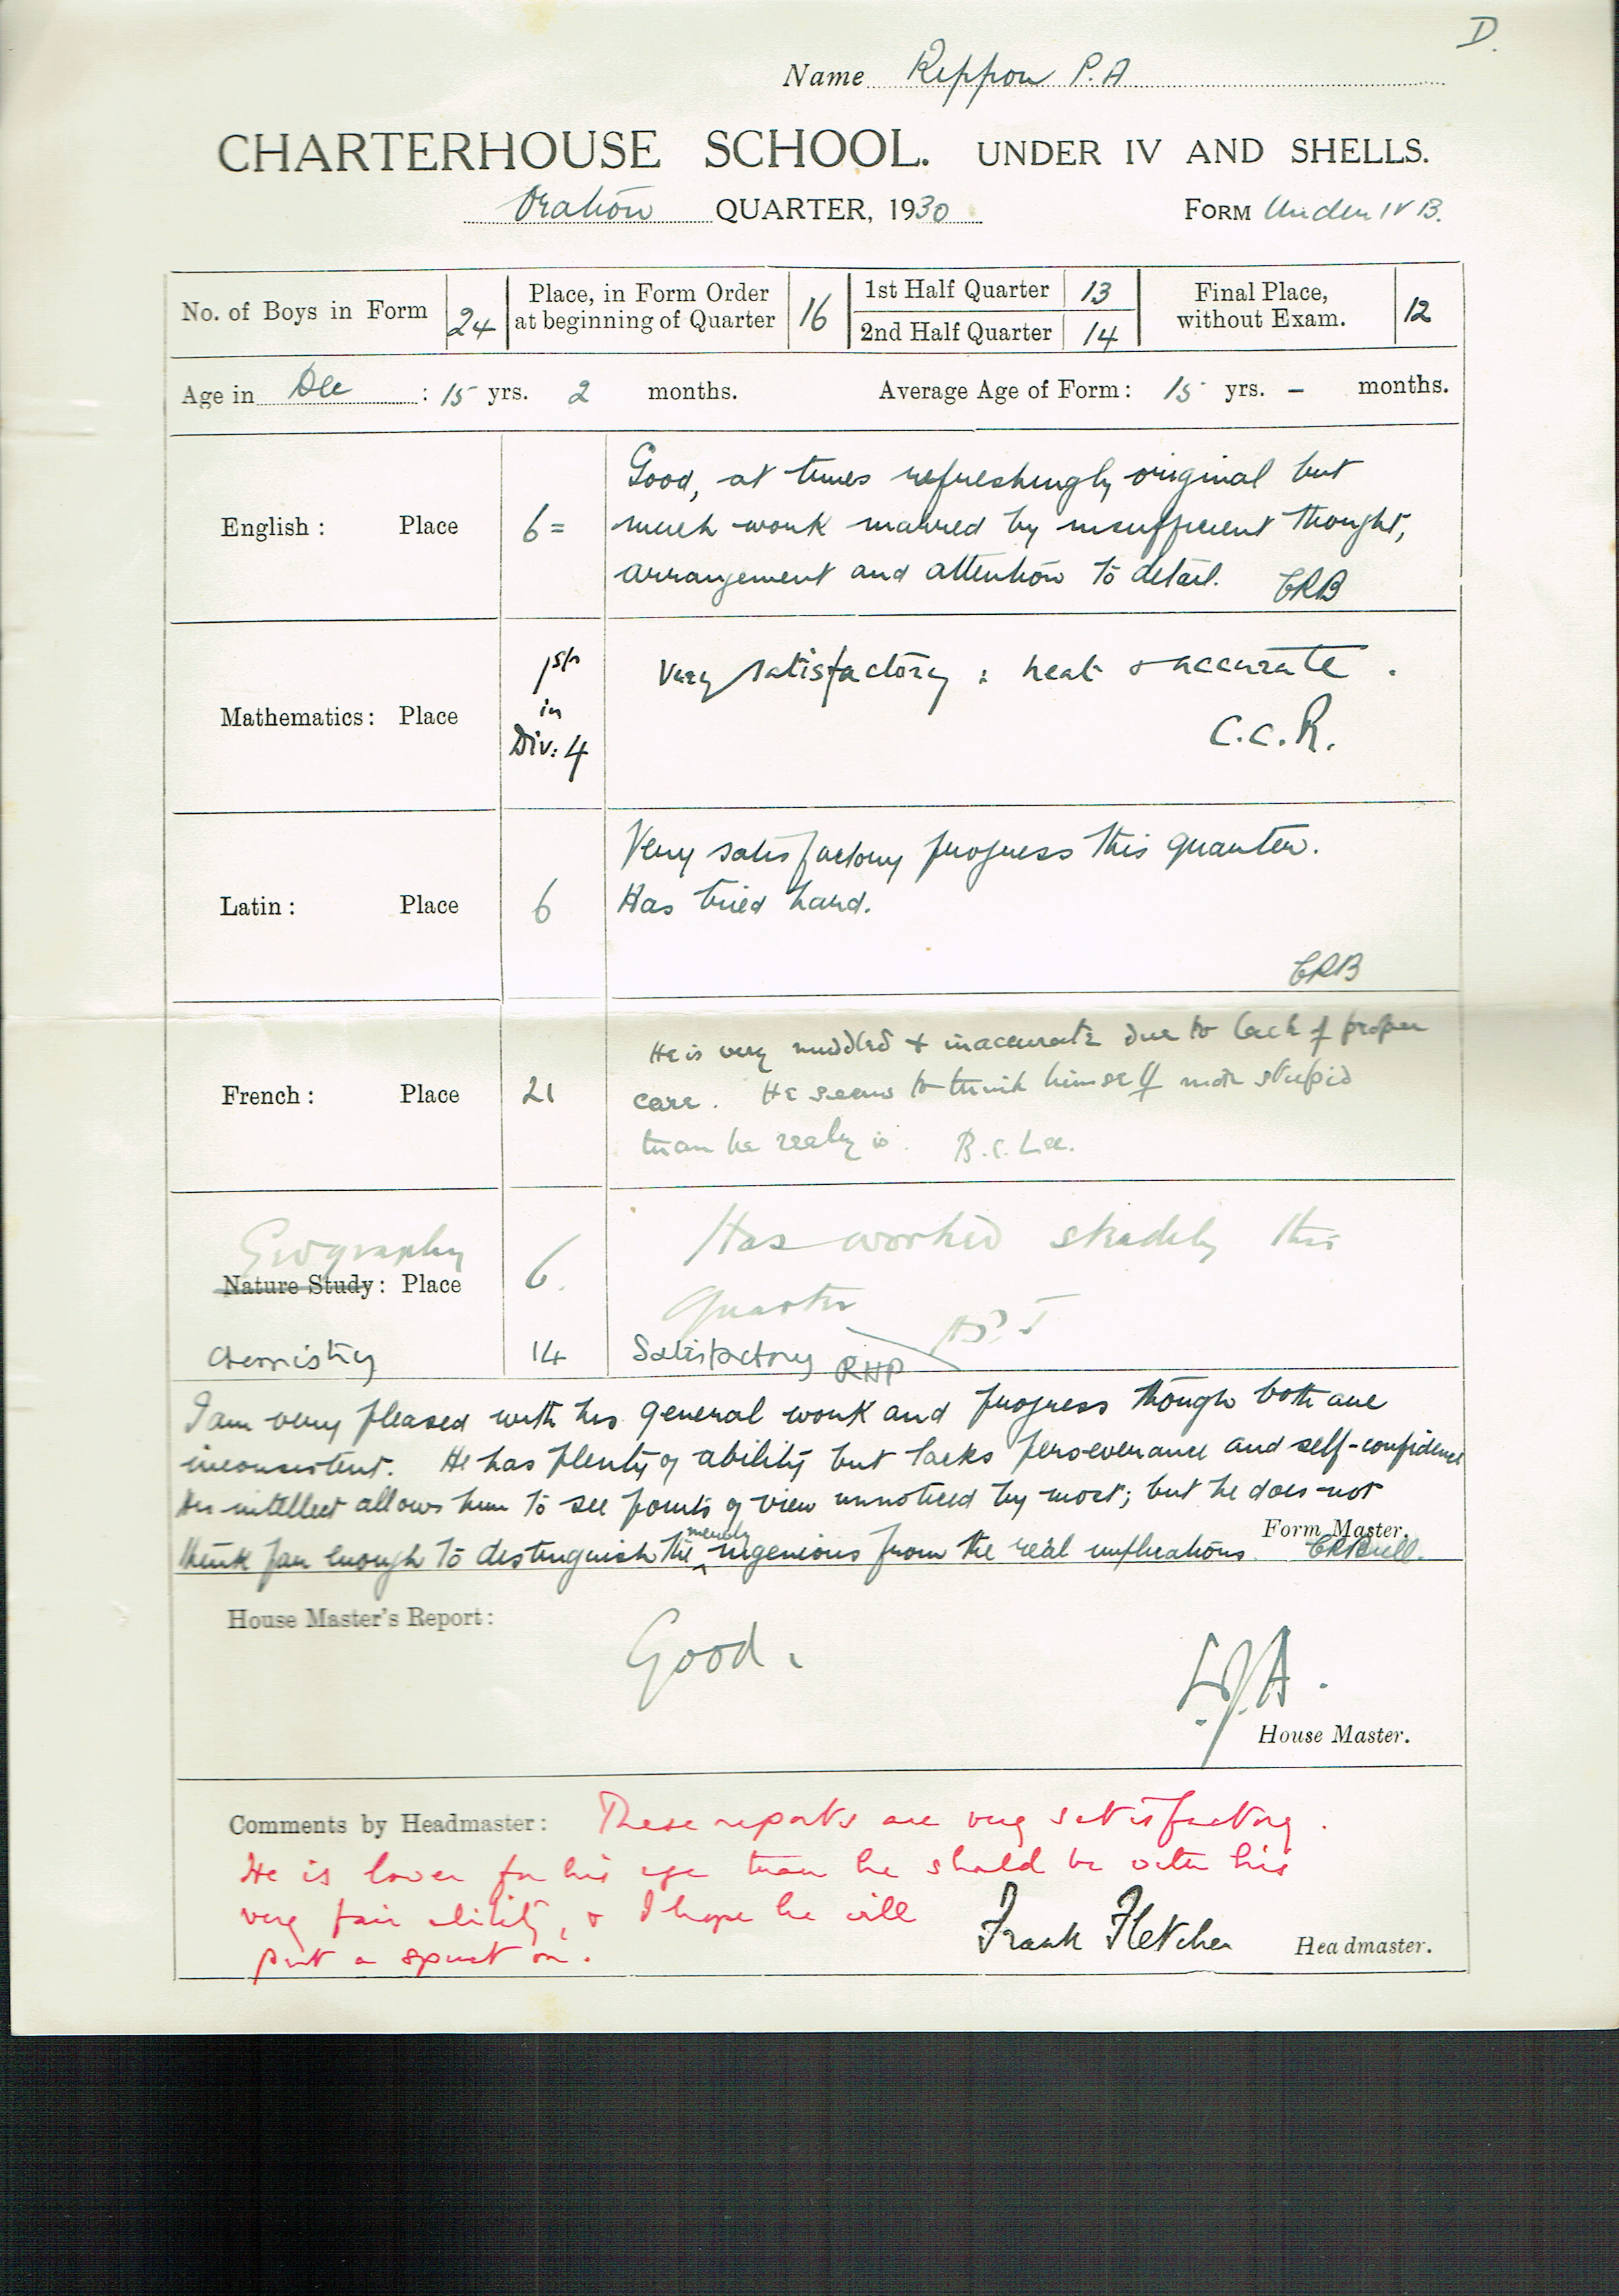 D.
Name Reppon P.A
CHARTERHOUSE SCHOOL. UNDER IV AND SHELLS.
Oration QUARTER, 1930 FORM Under IV B.
No. of Boys in Form 24 Place, in Form Order at beginning of Quarter 16 1st Half Quarter 13 Final Place, without Exam. 12
2nd Half Quarter 14
Age in Dec : 15 yrs. 2 months. Average Age of Form: 15 yrs. – months.
Good, at times refreshingly original but
English: Place 6= much work marred by insufficient thought,
arrangement and attention to detail. CRB
1st Very satisfactory: neat & accurate.
Mathematics: Place in
Div: 4 C.C.R.
Very satisfactory progress this quarter.
Latin: Place 6 Has tried hard.
CRB
He is very muddled & inaccurate due to lack of proper
French: Place 21 care. He seems to think himself more stupid
than he really is. B.C. Lee.
Geography Has worked steadily this
Nature Study: Place 6. Quarter
Chemistry 14 Satisfactory RHP
I am very pleased with his general work and progress though both are
inconsistent. He has plenty of ability but lacks perseverance and self-confidence
His intellect allows him to see points of view unnoticed by most; but he does not
think far enough to distinguish the merely ingenious from the real implications. Form Master.
House Master's Report: Good.
L.J.A.
House Master.
Comments by Headmaster: These reports are very satisfactory.
He is lower for his age than he should be with his
very fair ability, & I hope he will
put a spurt on. Frank Fletcher Headmaster.